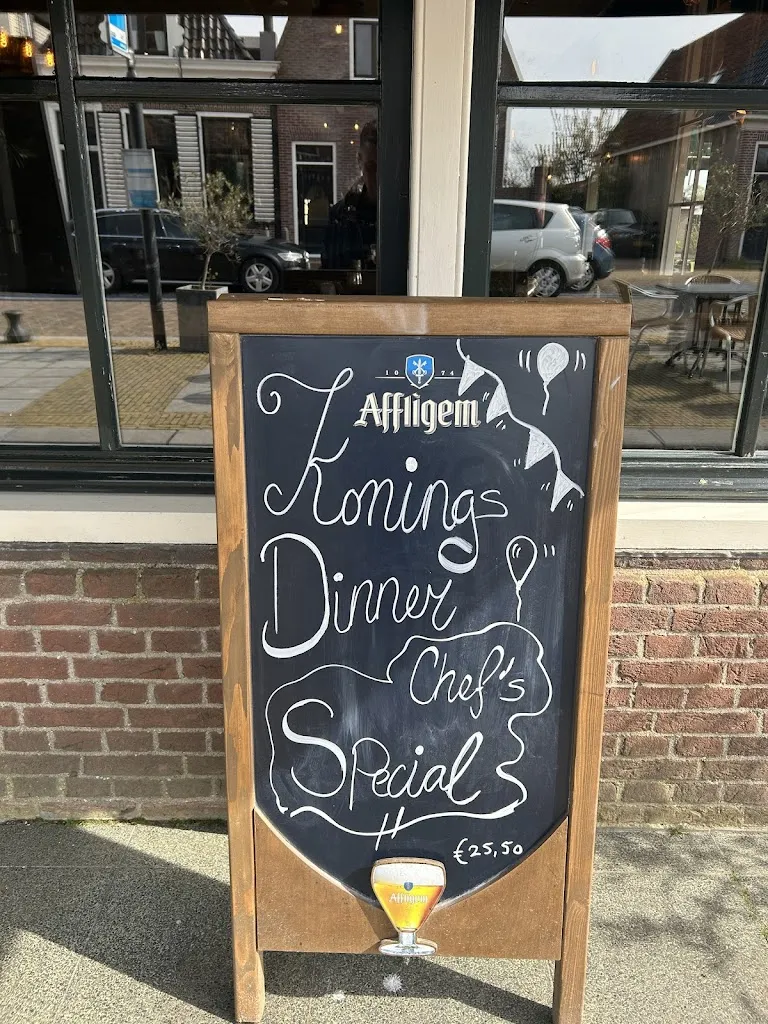 10 74
Affligem
Konings
Dinner
Chef's
Special
€25,50
Affligem